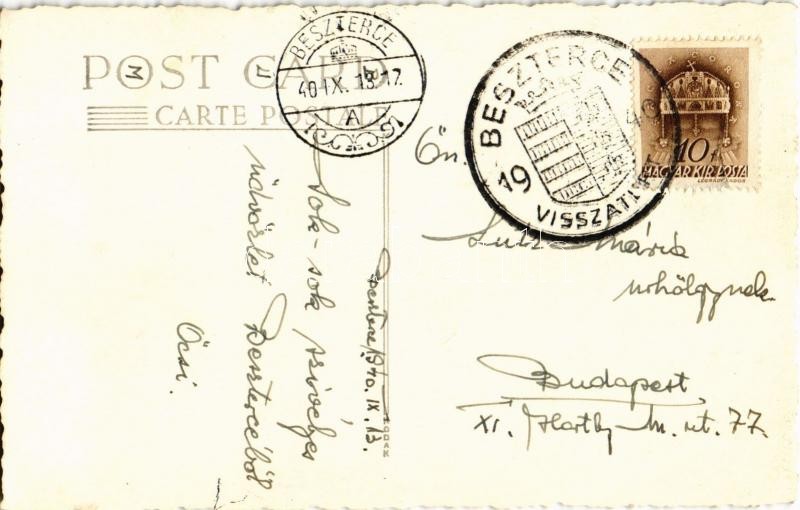 POST CARD
CARTE POSTALE
BESZTERCE
40 IX. 13. 17
A
BESZTERCE
1940
VISSZATÉRT
10 f
MAGYAR KIR. POSTA
LÉGRÁDY SÁNDOR
Ön.
Mária
úrhölgynek
Budapest
XI. Horthy M. út. 77.
Beszterce, 1940. IX. 13.
Sok-sok szívélyes
üdvözlet Beszterceből
Öcsi.
KODAK